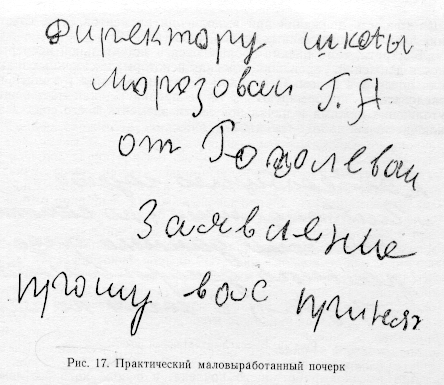 Директору школы
Морозовои Г.А.
от Гоголевои
Заявление
прошу вас принят
Рис. 17. Практический маловыработанный почерк